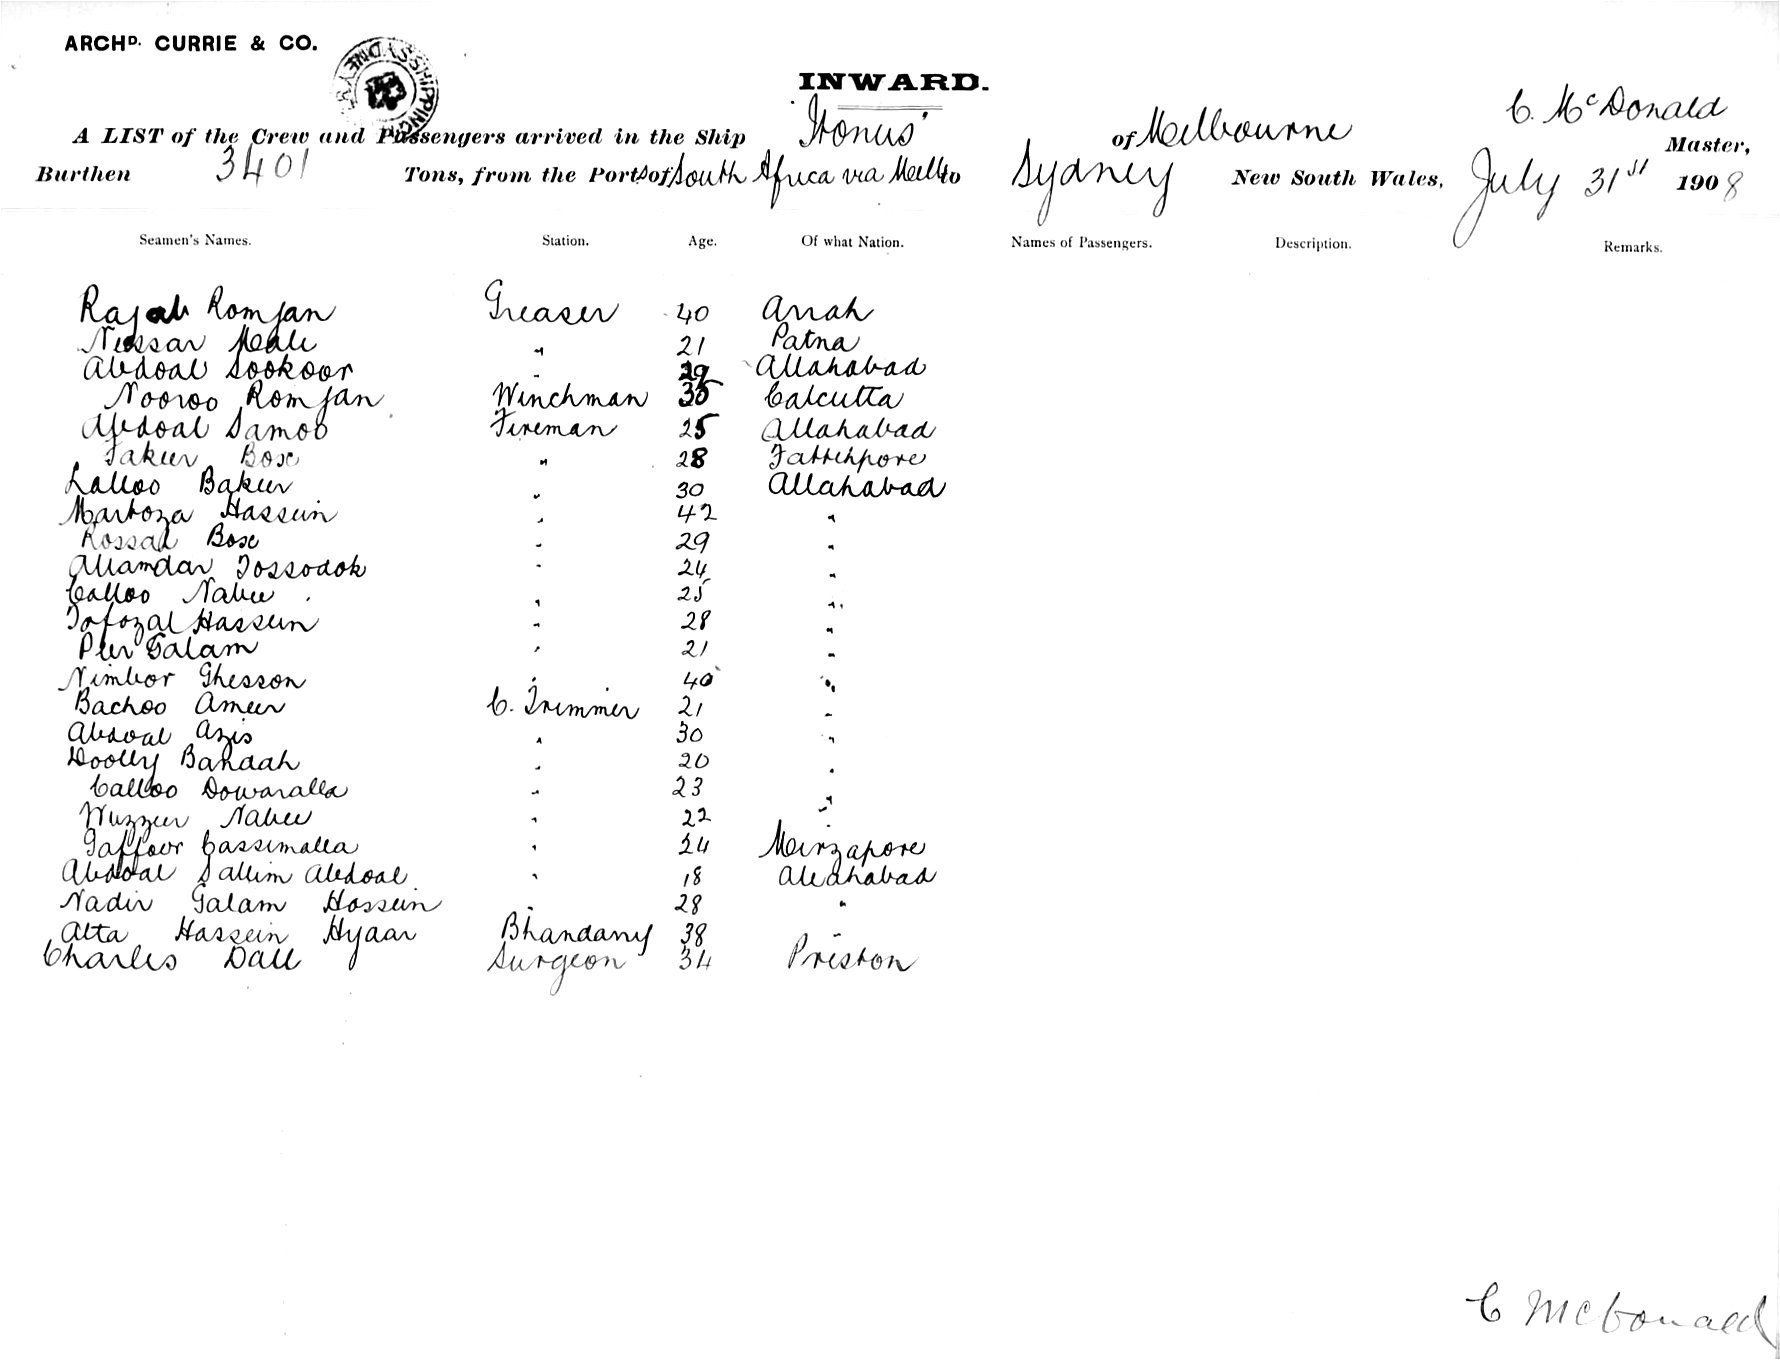 ARCHD. CURRIE & CO.
SHIPPING SYDNEY
INWARD.
A LIST of the Crew and Passengers arrived in the Ship "Itonus" of Melbourne C. McDonald Master,
Burthen 3401 Tons, from the Ports of South Africa via Melb Sydney New South Wales, July 31st 1908
Seamen's Names. Station. Age. Of what Nation. Names of Passengers. Description. Remarks.
Rajab Romjan Greaser 40 Arrah
Nussar " 21 Patna
Abdoal Sookoor " 29 Allahabad
Nooroo Romjan Winchman 35 Calcutta
Abdoal Samoo Fireman 25 Allahabad
Fakeer Box " 28 Fattehpore
Lalloo Bakur " 30 Allahabad
Martoza Hassein " 42 "
Rossal Box " 29 "
Allamdar Tossodok " 24 "
Calloo Nabee " 25 "
Tofozal Hassein " 28 "
Peer Galam " 21 "
Nimbor Ghesson " 40 "
Bachoo Ameer C. Trimmer 21 "
Abdoal Azis " 30 "
Doolly Bandah " 20 "
Calloo Dowaralla " 23 "
Wuzzeer Nabee " 22 "
Gaffoor Cassimalla " 24 Mirzapore
Abdoal Sallim Abdoal " 18 Allahabad
Nadir Galam Hossein " 28 "
Atta Hassein Hyaar Bhandary 38 "
Charles Dall Surgeon 34 Preston
C McDonald